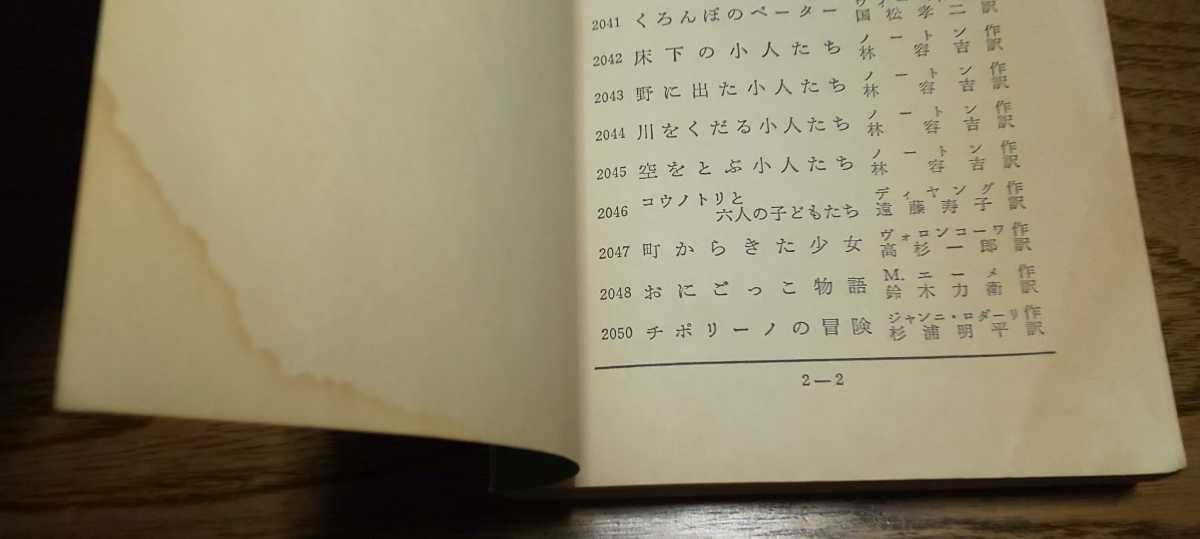 2041 くろんぼのペーター 国松孝二 訳
2042 床下の小人たち ノートン 作
林容吉 訳
2043 野に出た小人たち ノートン 作
林容吉 訳
2044 川をくだる小人たち ノートン 作
林容吉 訳
2045 空をとぶ小人たち ノートン 作
林容吉 訳
2046 コウノトリと ディヤング 作
六人の子どもたち 遠藤寿子 訳
2047 町からきた少女 ヴォロンコーワ 作
高杉一郎 訳
2048 おにごっこ物語 M.エーメ 作
鈴木力衛 訳
2050 チポリーノの冒険 ジャンニ・ロダーリ 作
杉浦明平 訳
2—2